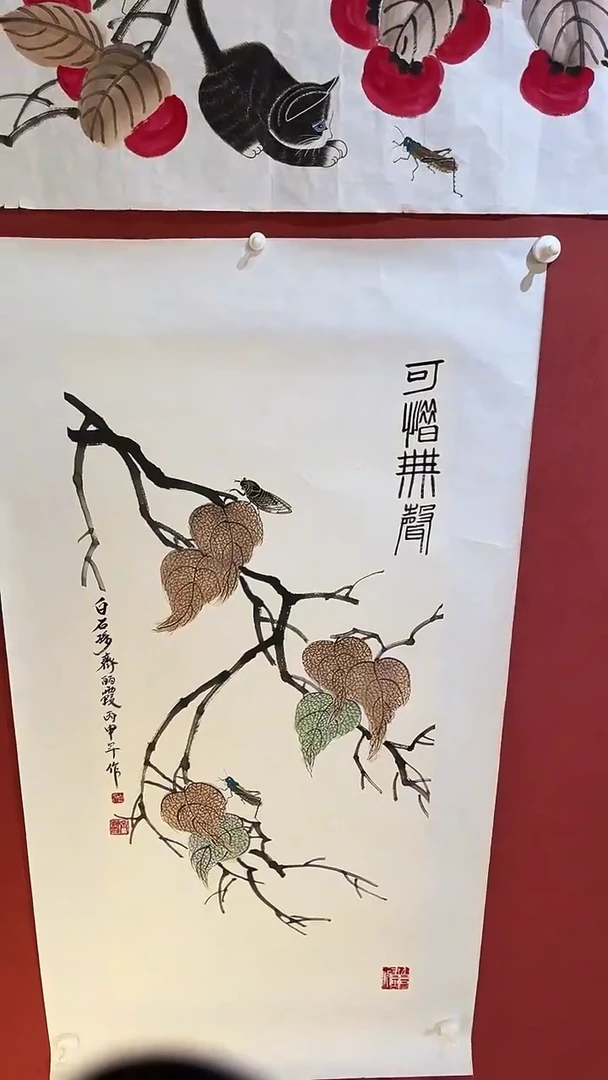 可惜無聲
白石孫齊的霞丙申年作